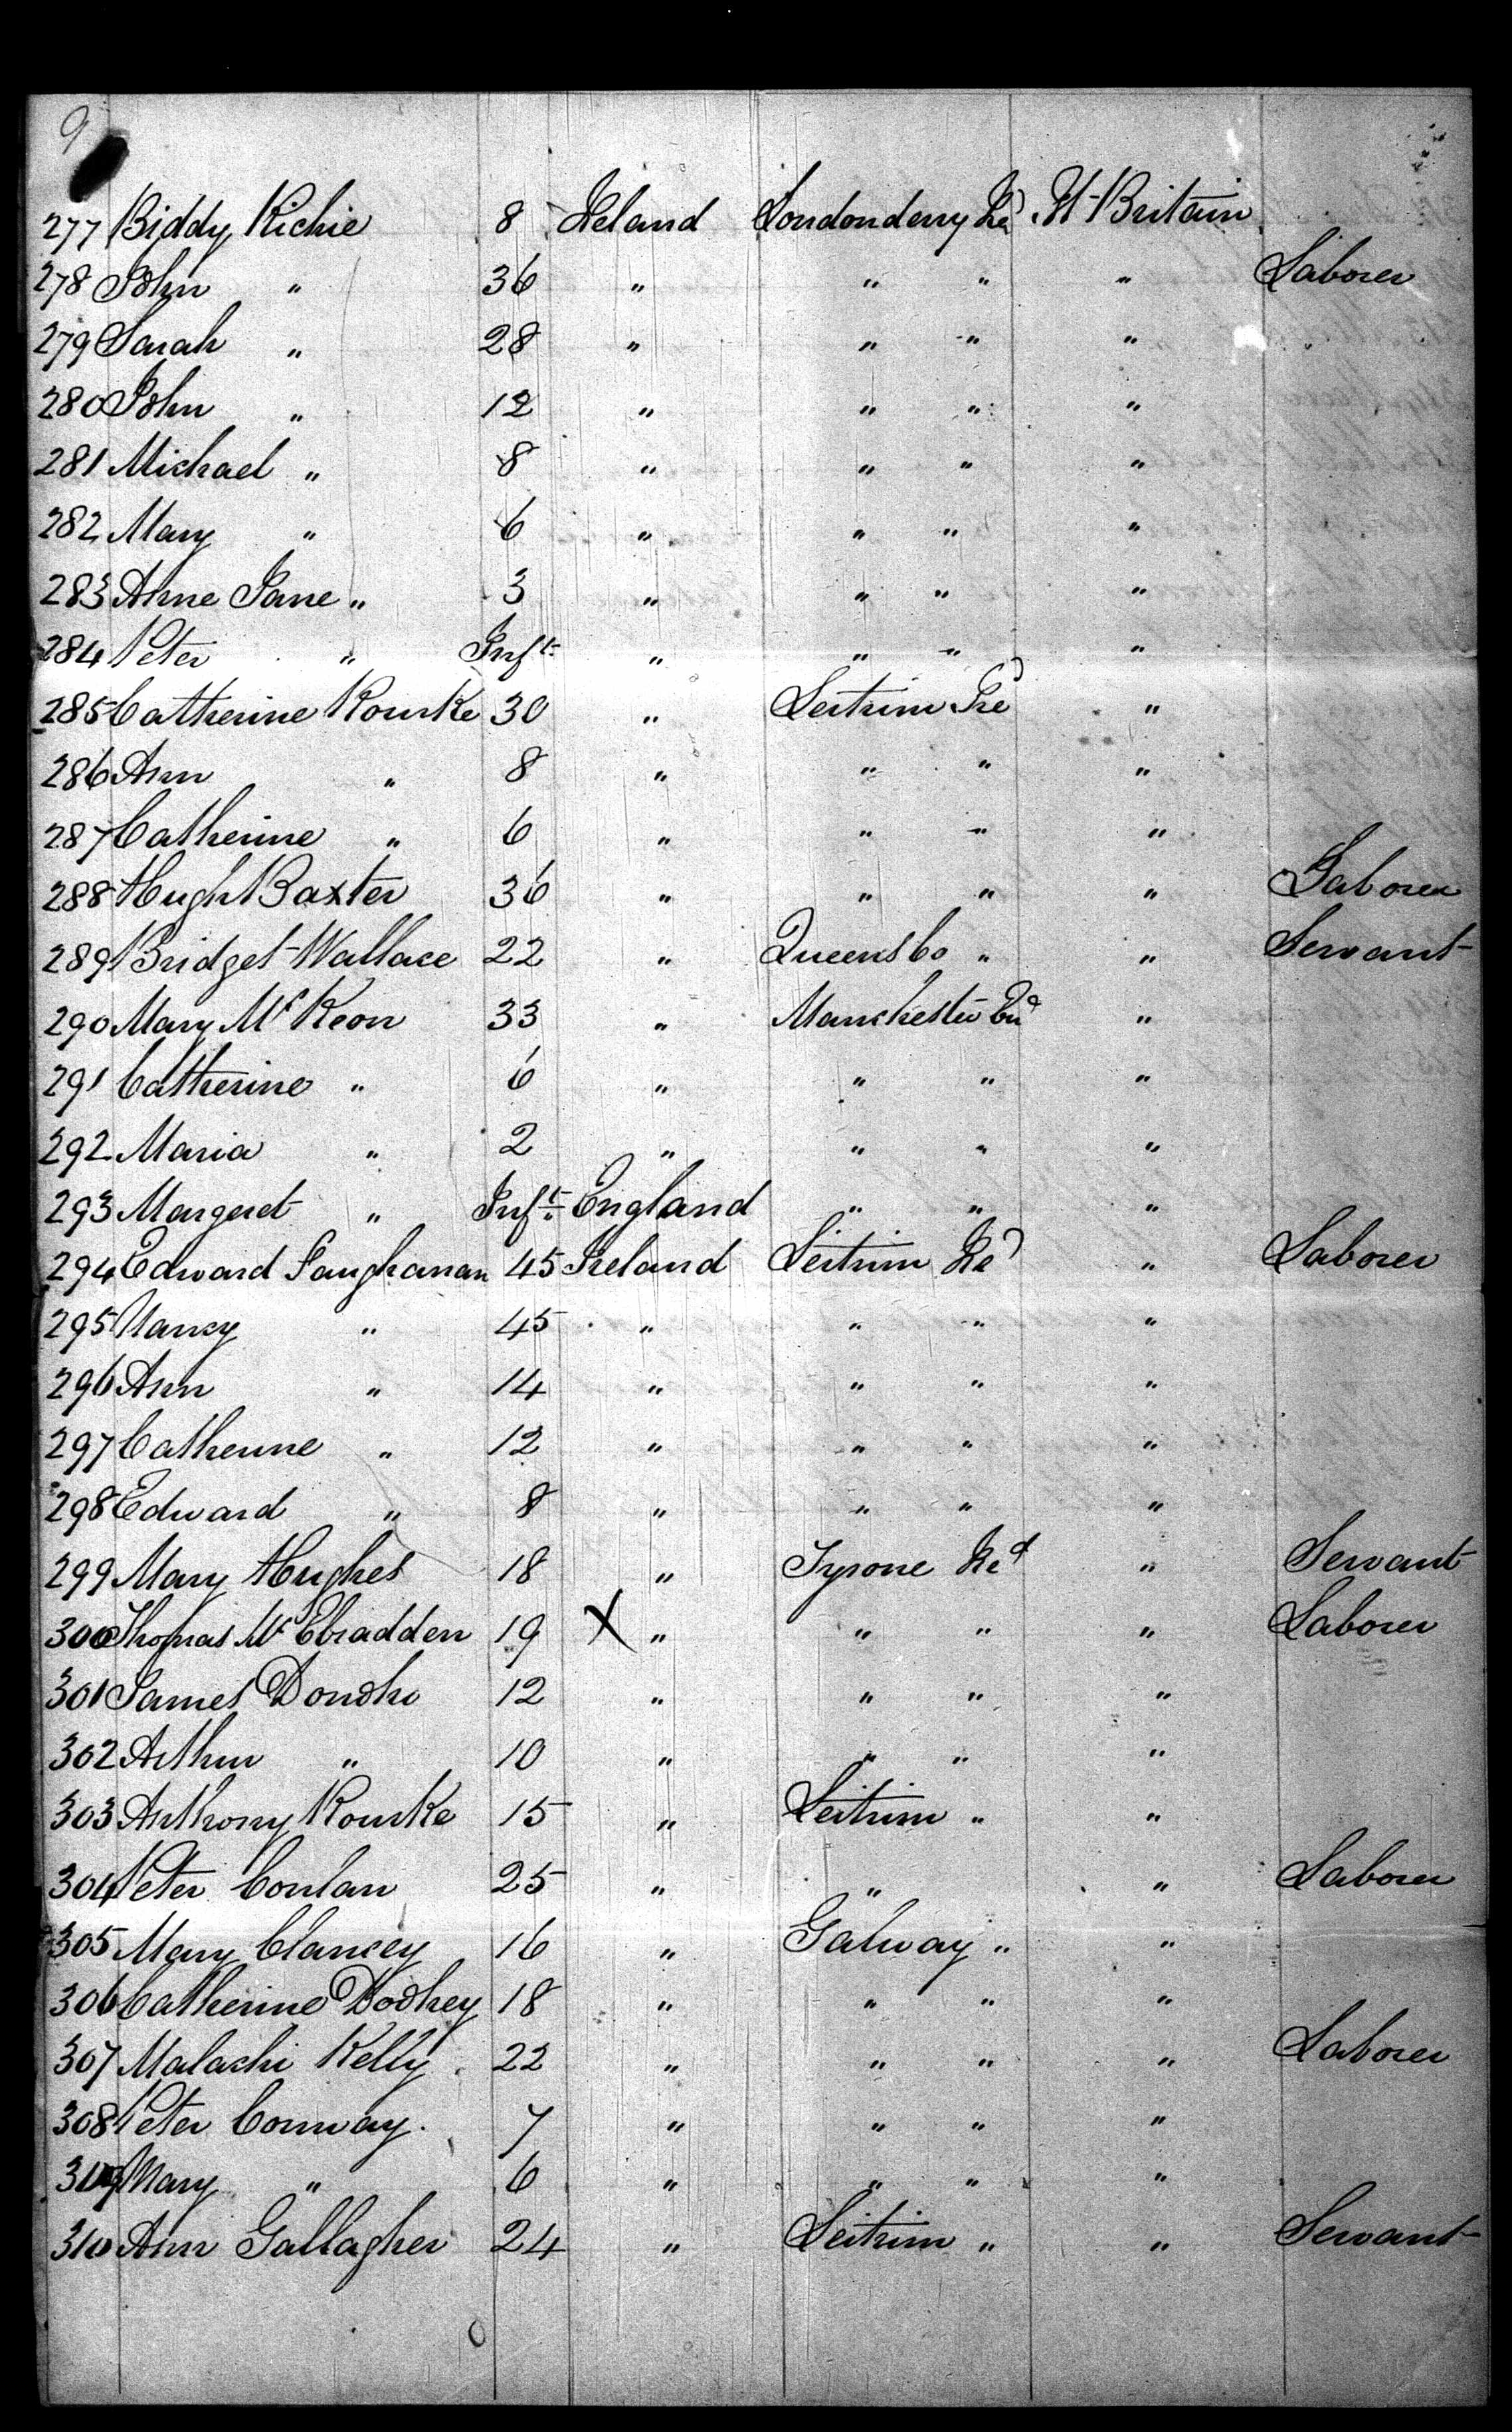 9
277 Biddy Richie 8 Ireland Londonderry Ire'd Gt Britain
278 John " 36 " " " " Laborer
279 Sarah " 28 " " " "
280 John " 12 " " " "
281 Michael " 8 " " " "
282 Mary " 6 " " " "
283 Anne Jane " 3 " " " "
284 Peter " Inft " " " "
285 Catherine Rourke 30 " Leitrim Ire'd "
286 Ann " 8 " " " "
287 Catherine " 6 " " " "
288 Hugh Baxter 36 " " " " Laborer
289 Bridget Wallace 22 " Queens Co " " Servant
290 Mary McKeon 33 " Manchester End "
291 Catherine " 6 " " " "
292 Maria " 2 " " " "
293 Margeret " Inft England " " "
294 Edward 45 Ireland Leitrim Ire'd " Laborer
295 Nancy " 45 " " " "
296 Ann " 14 " " " "
297 Catherine " 12 " " " "
298 Edward " 8 " " " "
299 Mary Hughes 18 " Tyrone Ired " Servant
300 Thomas 19 X " " " " Laborer
301 James 12 " " " "
302 Arthur " 10 " " " "
303 Anthony Rourke 15 " Leitrim " "
304 Peter Conlan 25 " " " Laborer
305 Mary Clancey 16 " Galway " "
306 Catherine 18 " " " "
307 Malachi Kelly 22 " " " " Laborer
308 Peter Conway 7 " " " "
309 Mary " 6 " " " "
310 Ann Gallagher 24 " Leitrim " " Servant